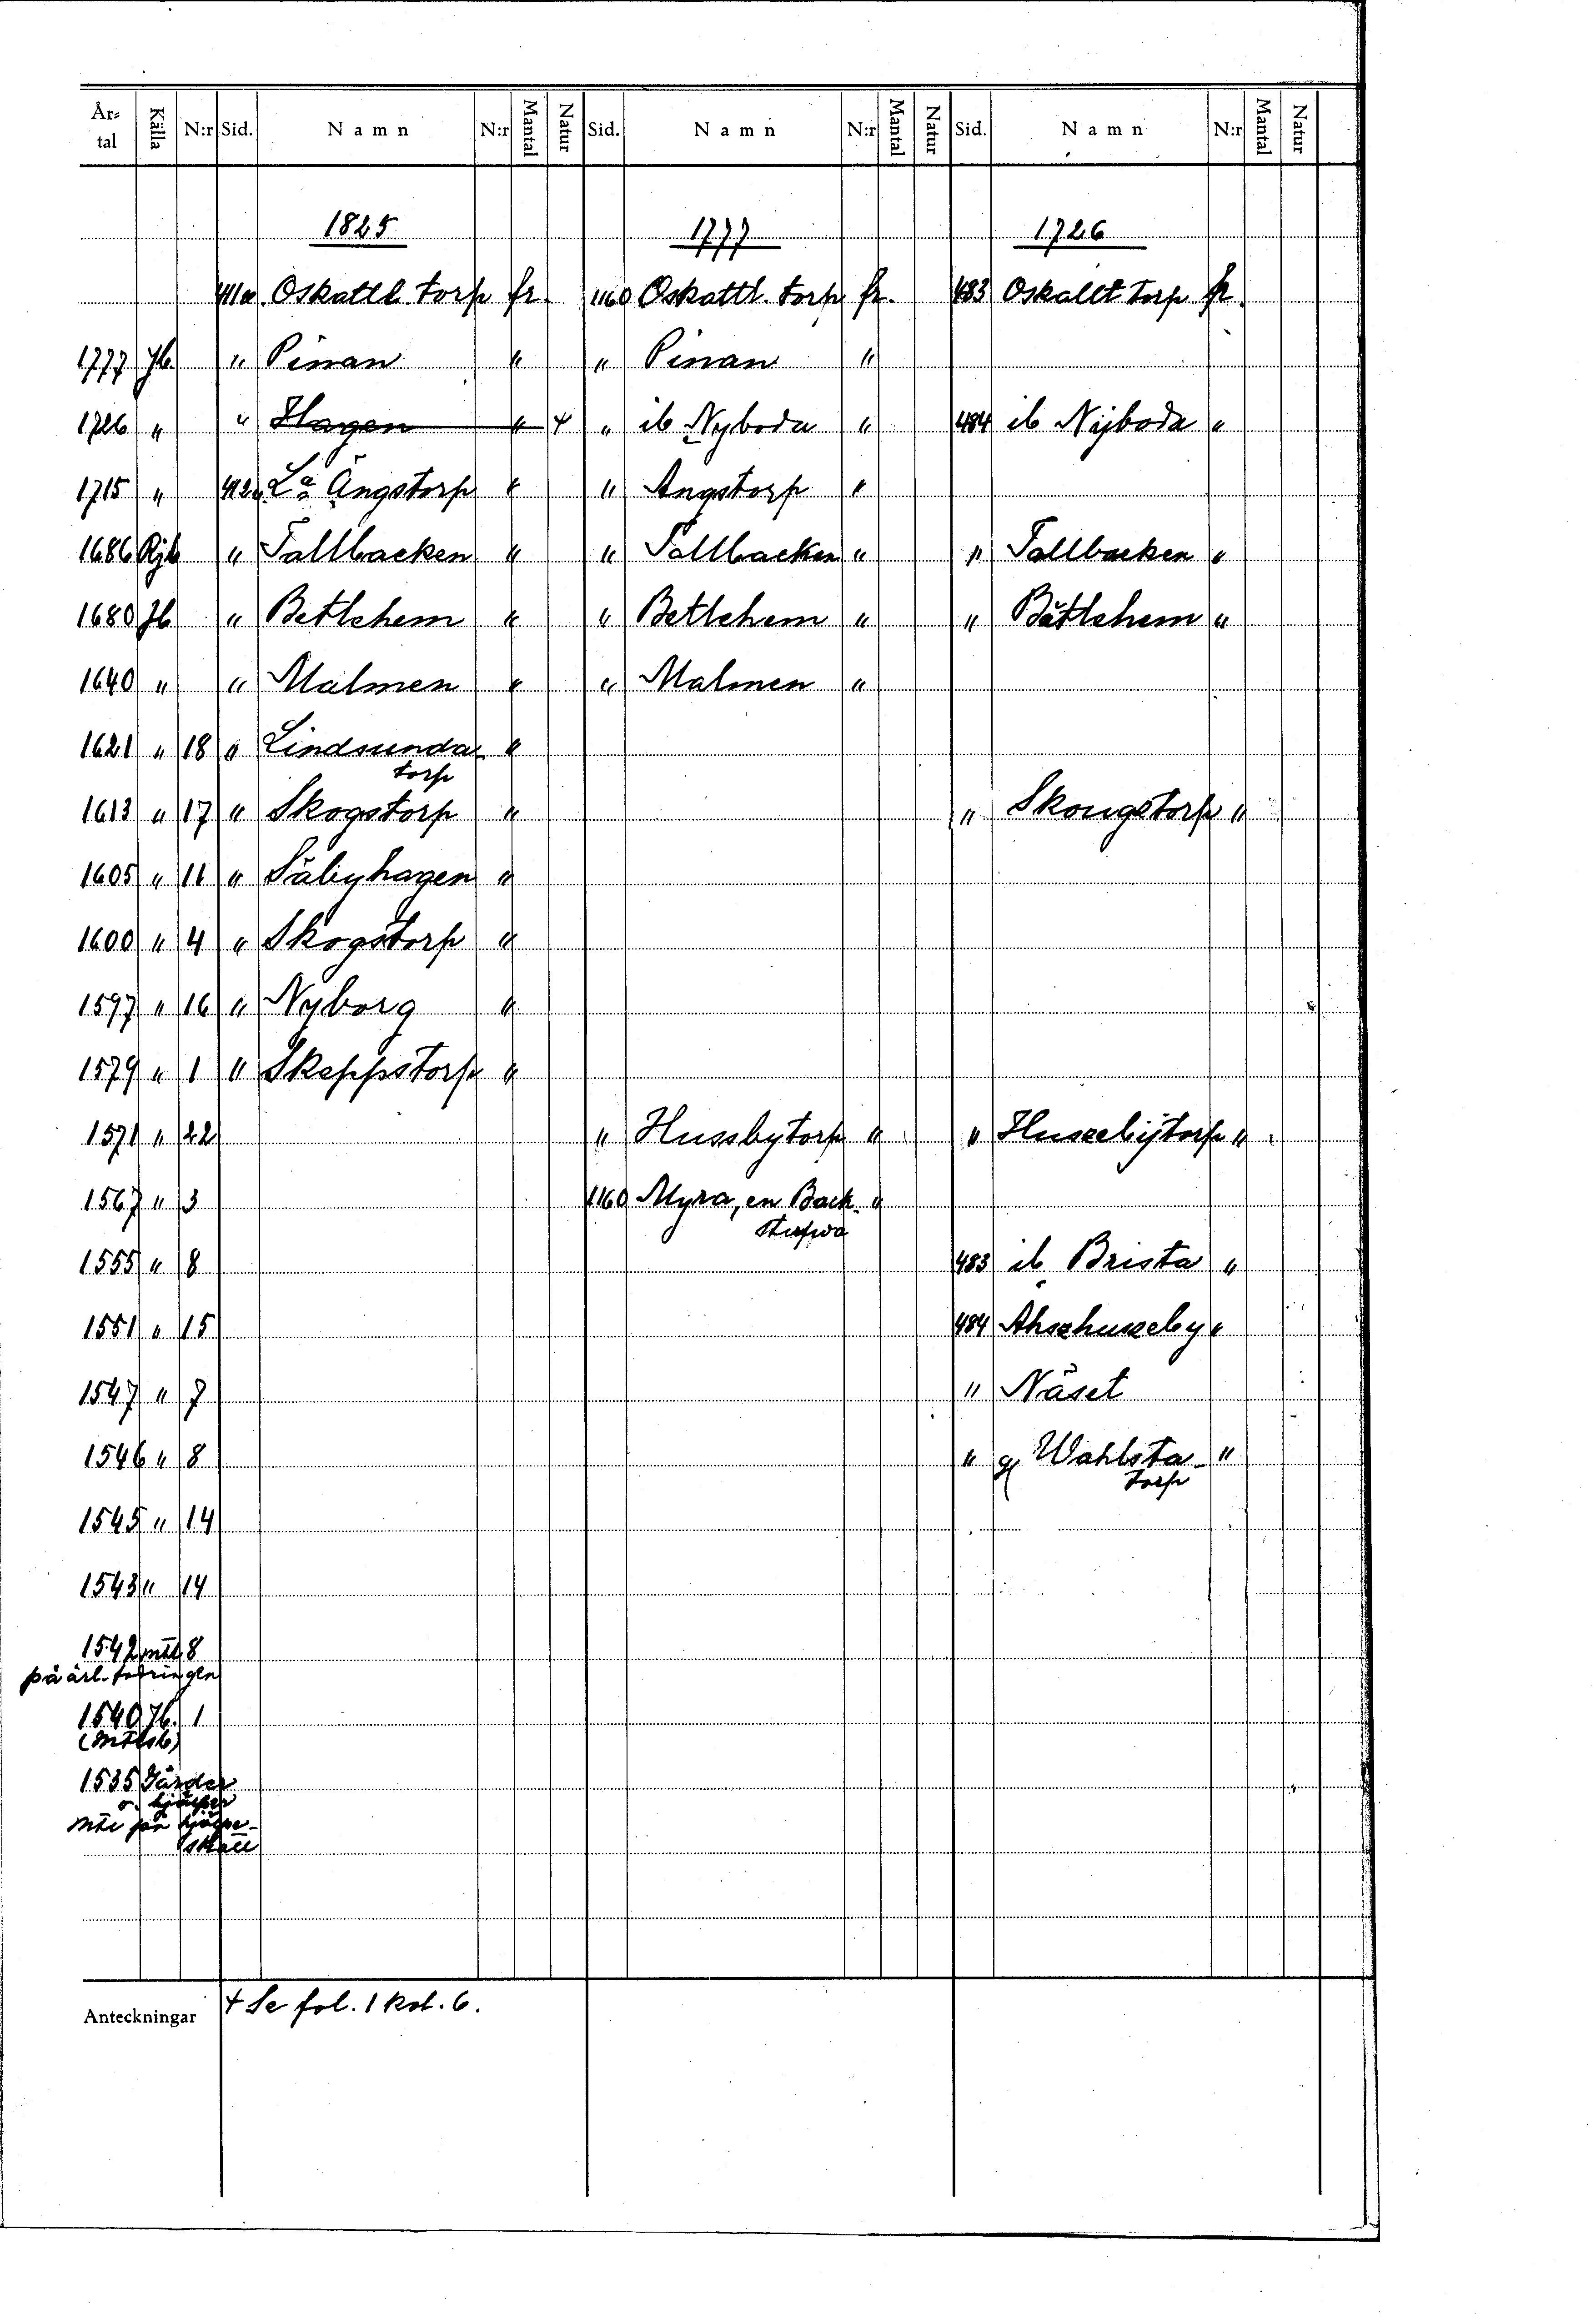 År- tal Källa N:r Sid. Namn N:r Mantal Natur Sid. Namn N:r Mantal Natur Sid. Namn N:r Mantal Natur
1825 1777 1726
411a Oskattl. torp fr. 1160 Oskattl. torp fr. 483 Oskallt torp fr.
1777 Jb. " Pinan " " Pinan "
1726 " " Hagen " + " ib Nyboda " 484 ib Nijboda "
1715 " 412a La Ängstorp " " Ängstorp "
1686 Rjb " Tallbacken " " Tallbacken " " Tallbacken "
1680 Jb " Betlehem " " Betlehem " " Bätlehem "
1640 " " Malmen " " Malmen "
1621 " 18 " Lindsunda- "
torp
1613 " 17 " Skogstorp " " Skougstorp "
1605 " 11 " Säbyhagen "
1600 " 4 " Skogstorp "
1597 " 16 " Nyborg "
1579 " 1 " Skeppstorp "
1571 " 22 " Hussbytorp " " Huseebijtorp "
1567 " 3 1160 Myra, en Back- "
stufwa
1555 " 8 483 ib Brista "
1551 " 15 484 Ahsehuseby "
1547 " 7 " Näset
1546 " 8 " Wahlsta- "
torp
1545 " 14
1543 " 14
1542 mtl 8
på årl. fodringen
1540 Jb. 1
(Mtlsb)
1535 Gärder
o. hjälper
Mtl på hjälpe-
skatt
Anteckningar + Se fol. 1 kol. 6.